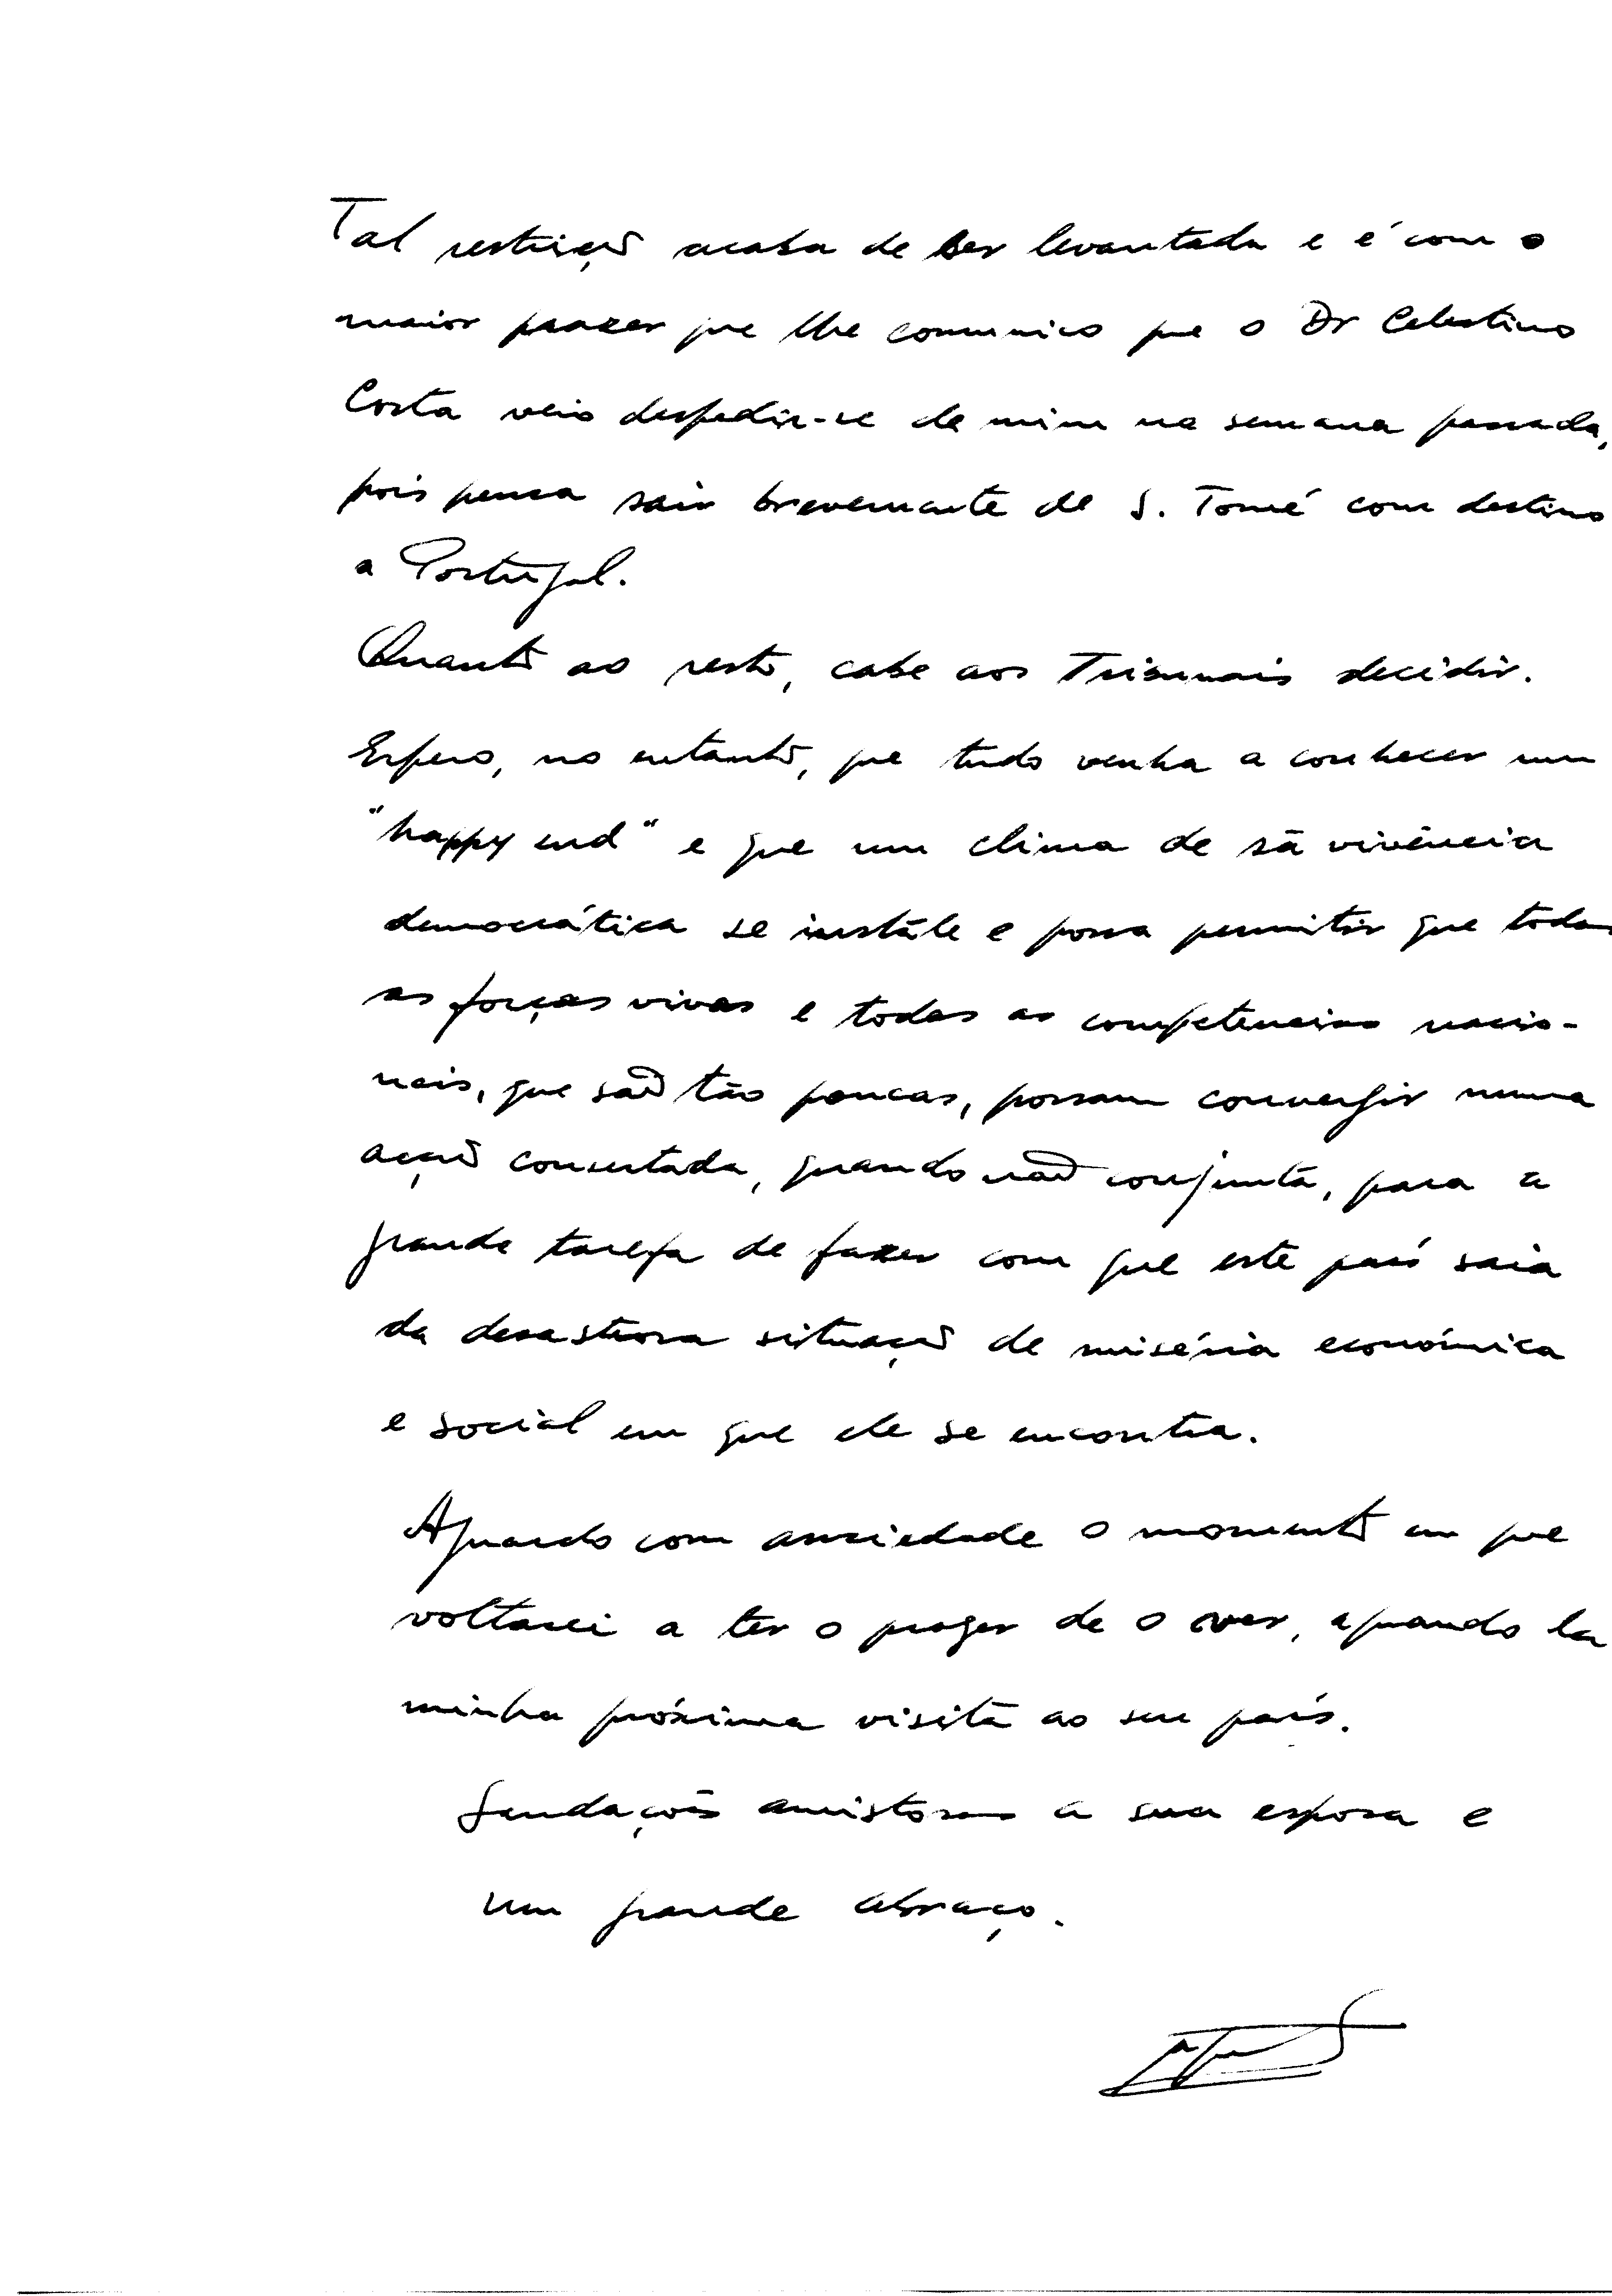 Tal restrição acaba de ser levantada e é com o
maior prazer que lhe comunico que o Dr Celestino
Costa veio despedir-se de mim na semana passada,
pois pensa sair brevemente de S. Tomé com destino
a Portugal.
Quanto ao resto, cabe aos Tribunais decidir.
Espero, no entanto, que tudo venha a conhecer um
"happy end" e que um clima de sã vivência
democrática se instale e possa permitir que todas
as forças vivas e todas as competencias nacio-
nais, que são tão poucas, possam convergir numa
acção consertada, quando não conjunta, para a
grande tarefa de fazer com que este país saia
da desastrosa situação de miséria económica
e social em que ele se encontra.
Aguardo com ansiedade o momento em que
voltarei a ter o prazer de o ver, aquando da
minha próxima visita ao seu país.
Saudações amistosas a sua esposa e
um grande abraço.